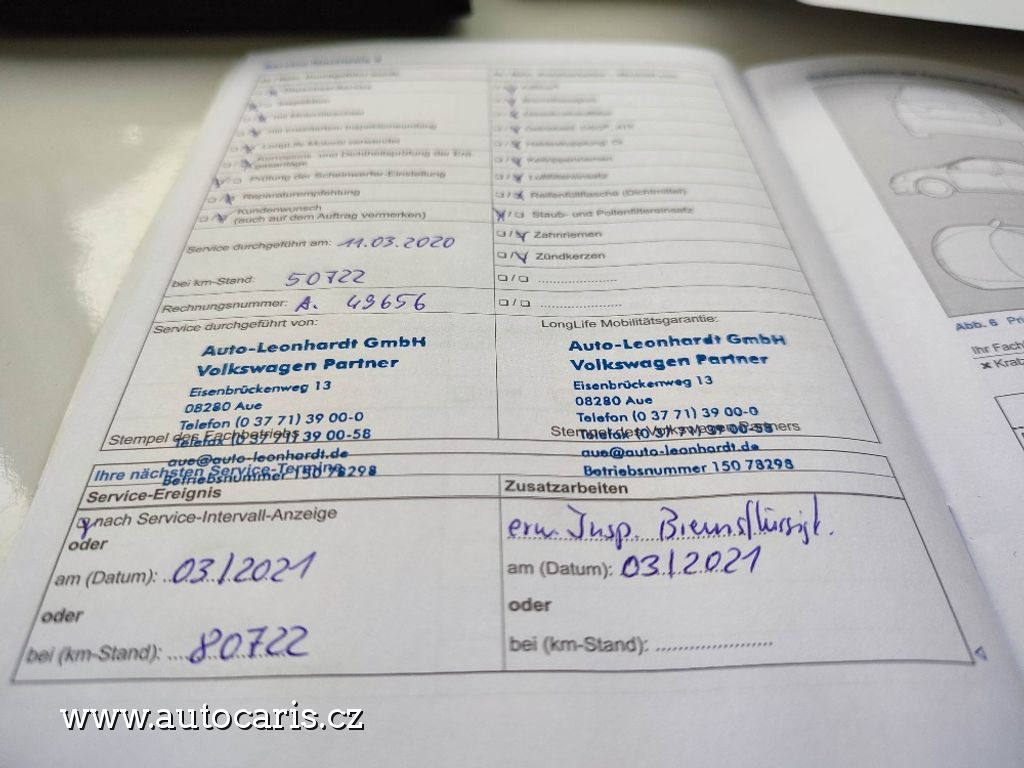 Service-Nachweis 3
Inspektion
mit Motorölwechsel
mit erweitertem Inspektionsumfang
LongLife Motoröl verwendet
Korrosions- und Dichtheitsprüfung der Erd-
gasanlage
Prüfung der Scheinwerfer-Einstellung
Reparaturempfehlung
Kundenwunsch
(auch auf dem Auftrag vermerken)
Service durchgeführt am: 11.03.2020
bei km-Stand: 50722
Rechnungsnummer: A. 49656
Luftfiltereinsatz
Reifenfüllflasche (Dichtmittel)
Staub- und Pollenfiltereinsatz
Zahnriemen
Zündkerzen
Service durchgeführt von:
Auto-Leonhardt GmbH
Volkswagen Partner
Eisenbrückenweg 13
08280 Aue
Telefon (0 37 71) 39 00-0
Telefax (0 37 71) 39 00-58
Stempel des Fachbetriebs
aue@auto-leonhardt.de
Betriebsnummer 150 78298
LongLife Mobilitätsgarantie:
Auto-Leonhardt GmbH
Volkswagen Partner
Eisenbrückenweg 13
08280 Aue
Telefon (0 37 71) 39 00-0
Telefax (0 37 71) 39 00-58
Stempel des Volkswagen Partners
aue@auto-leonhardt.de
Betriebsnummer 150 78298
Ihre nächsten Service-Termine
Service-Ereignis
nach Service-Intervall-Anzeige
oder
am (Datum): 03/2021
oder
bei (km-Stand): 80722
Zusatzarbeiten
erw. Insp. Bremsflüssigk.
am (Datum): 03/2021
oder
bei (km-Stand):
Abb. 6
Ihr Fach
Kratz
www.autocaris.cz